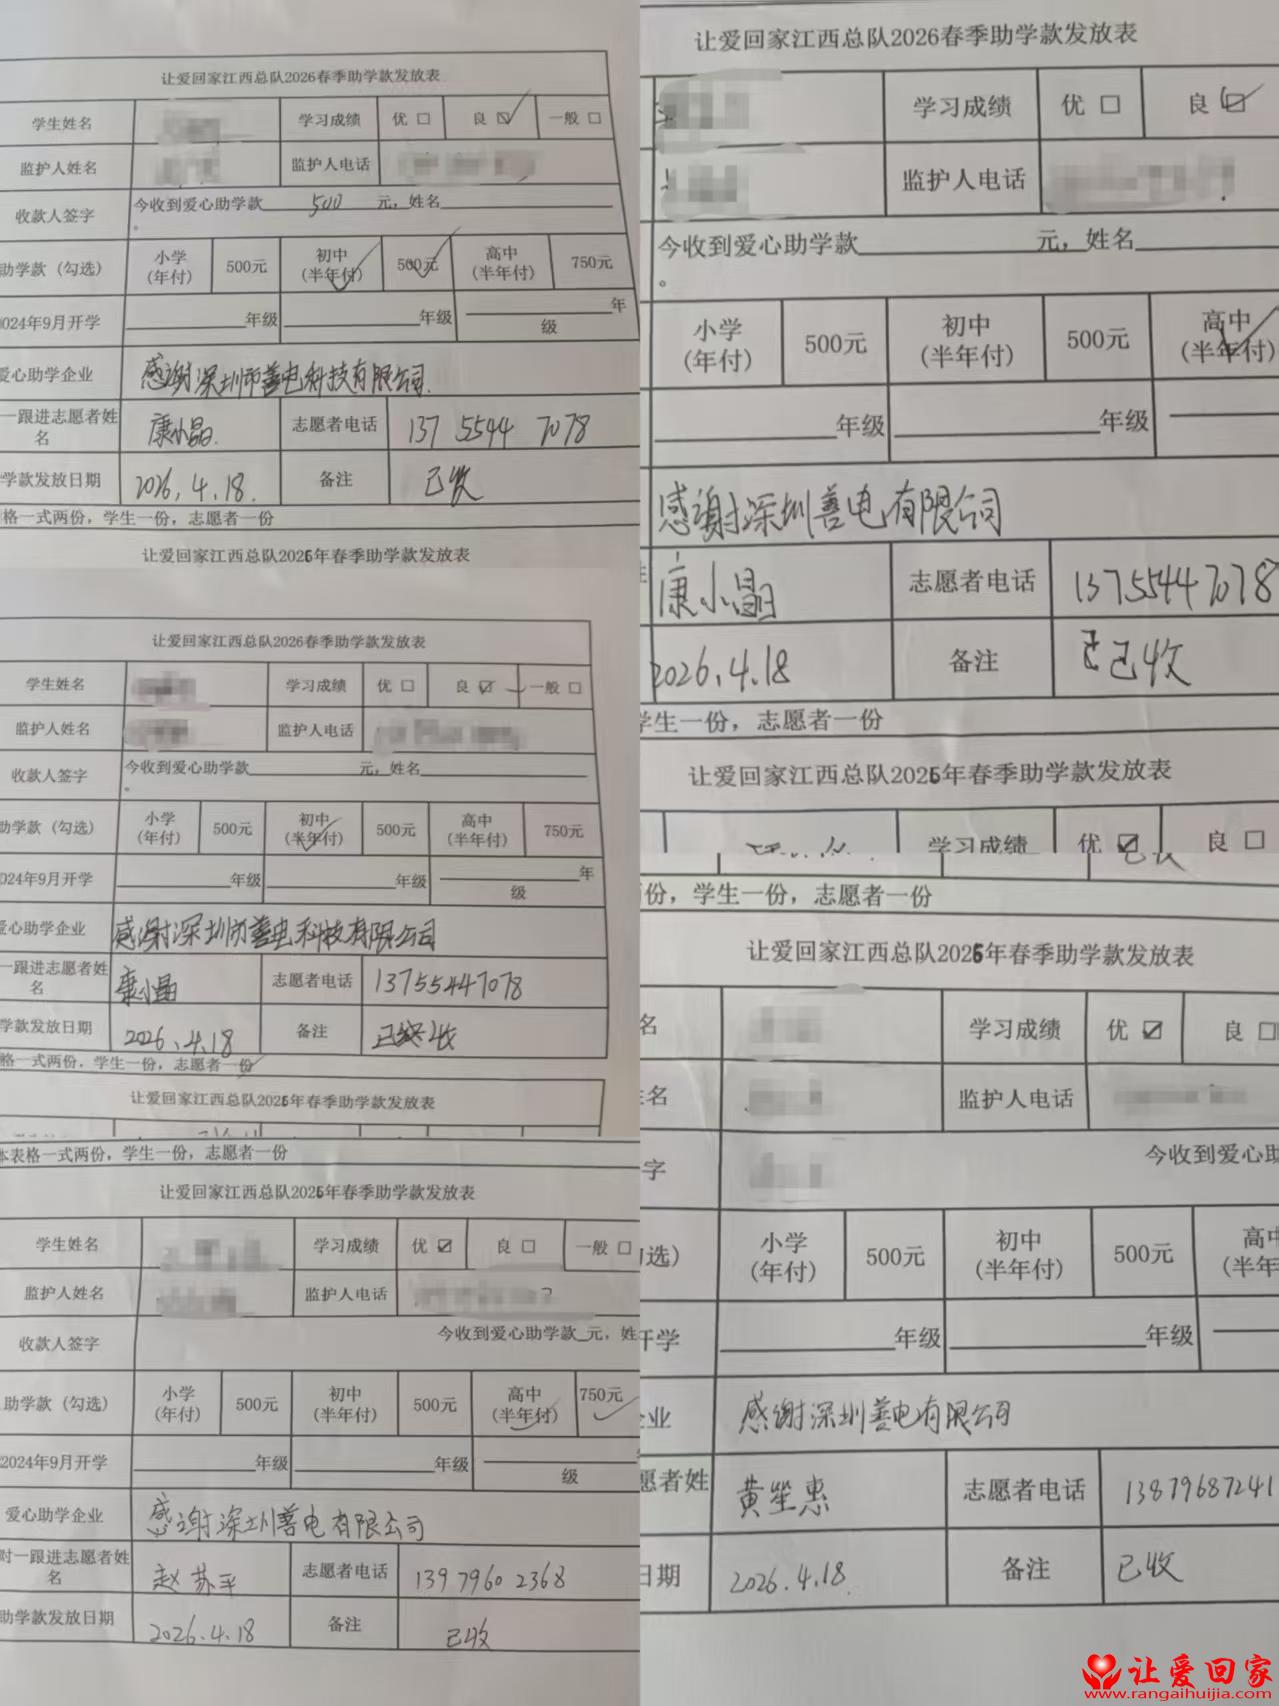 让爱回家江西总队2026春季助学款发放表
学生姓名 学习成绩 优 □ 良 ☑ 一般 □
监护人姓名 监护人电话
收款人签字 今收到爱心助学款 500 元，姓名
。
助学款（勾选） 小学（年付） 500元 初中（半年付） 500元 高中（半年付） 750元
2024年9月开学 年级 年级 年级
爱心助学企业 感谢深圳市善电科技有限公司.
一跟进志愿者姓名 康小晶. 志愿者电话 137 5544 7078
学款发放日期 2026.4.18. 备注 已收
格一式两份，学生一份，志愿者一份
让爱回家江西总队2026年春季助学款发放表
让爱回家江西总队2026春季助学款发放表
学生姓名 学习成绩 优 □ 良 ☑ 一般 □
监护人姓名 监护人电话
收款人签字 今收到爱心助学款 元，姓名
。
助学款（勾选） 小学（年付） 500元 初中（半年付） 500元 高中（半年付） 750元
2024年9月开学 年级 年级 年级
爱心助学企业 感谢深圳市善电科技有限公司
一跟进志愿者姓名 康小晶 志愿者电话 13755447078
学款发放日期 2026.4.18 备注 已 收
格一式两份，学生一份，志愿者一份
让爱回家江西总队2026年春季助学款发放表
本表格一式两份，学生一份，志愿者一份
让爱回家江西总队2026年春季助学款发放表
学生姓名 学习成绩 优 ☑ 良 □ 一般 □
监护人姓名 监护人电话
收款人签字 今收到爱心助学款 元，姓
助学款（勾选） 小学（年付） 500元 初中（半年付） 500元 高中（半年付） 750元
2024年9月开学 年级 年级 级
爱心助学企业 感谢深圳善电有限公司
对一跟进志愿者姓名 赵苏平 志愿者电话 139 7960 2368
助学款发放日期 2026.4.18 备注 已收
让爱回家江西总队2026春季助学款发放表
学习成绩 优 □ 良 ☑
监护人电话
今收到爱心助学款 元，姓名
。
小学（年付） 500元 初中（半年付） 500元 高中（半年付）
年级 年级
感谢深圳善电有限公司
康小晶 志愿者电话 13755447078
2026.4.18 备注 已收
学生一份，志愿者一份
让爱回家江西总队2026年春季助学款发放表
学习成绩 优 ☑ 良 □
份，学生一份，志愿者一份
让爱回家江西总队2026年春季助学款发放表
名 学习成绩 优 ☑ 良 □
名 监护人电话
字 今收到爱心助
勾选） 小学（年付） 500元 初中（半年付） 500元 高中（半年
开学 年级 年级
企业 感谢深圳善电有限公司
愿者姓 黄坐惠 志愿者电话 13879687241
日期 2026.4.18. 备注 已收
让爱回家
www.rangaihuijia.com